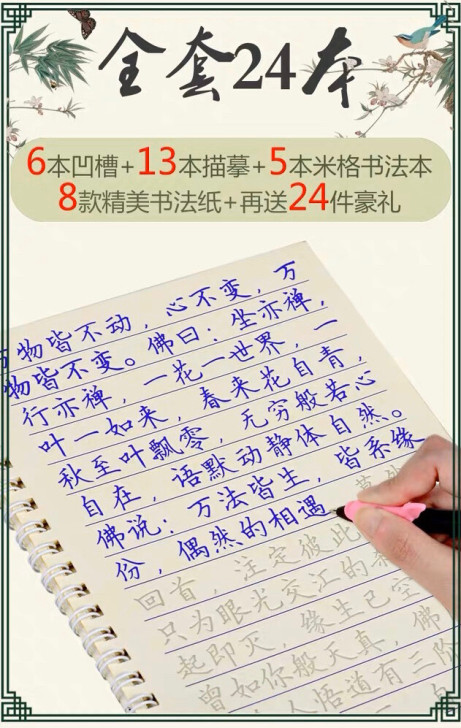 全套24本
6本凹槽+13本描摹+5本米格书法本
8款精美书法纸+再送24件豪礼
物皆不动，心不变，万
物皆不变。佛曰：坐亦禅，
行亦禅，一花一世界，一
叶一如来，春来花自青，
秋至叶飘零，无穷般若心
自在，语默动静体自然。
佛说：万法皆生，皆系缘
份，偶然的相遇
回首，注定彼此
只为眼光交汇的
起即灭，缘生已空
曾如你般天真，佛
人悟道有三阶